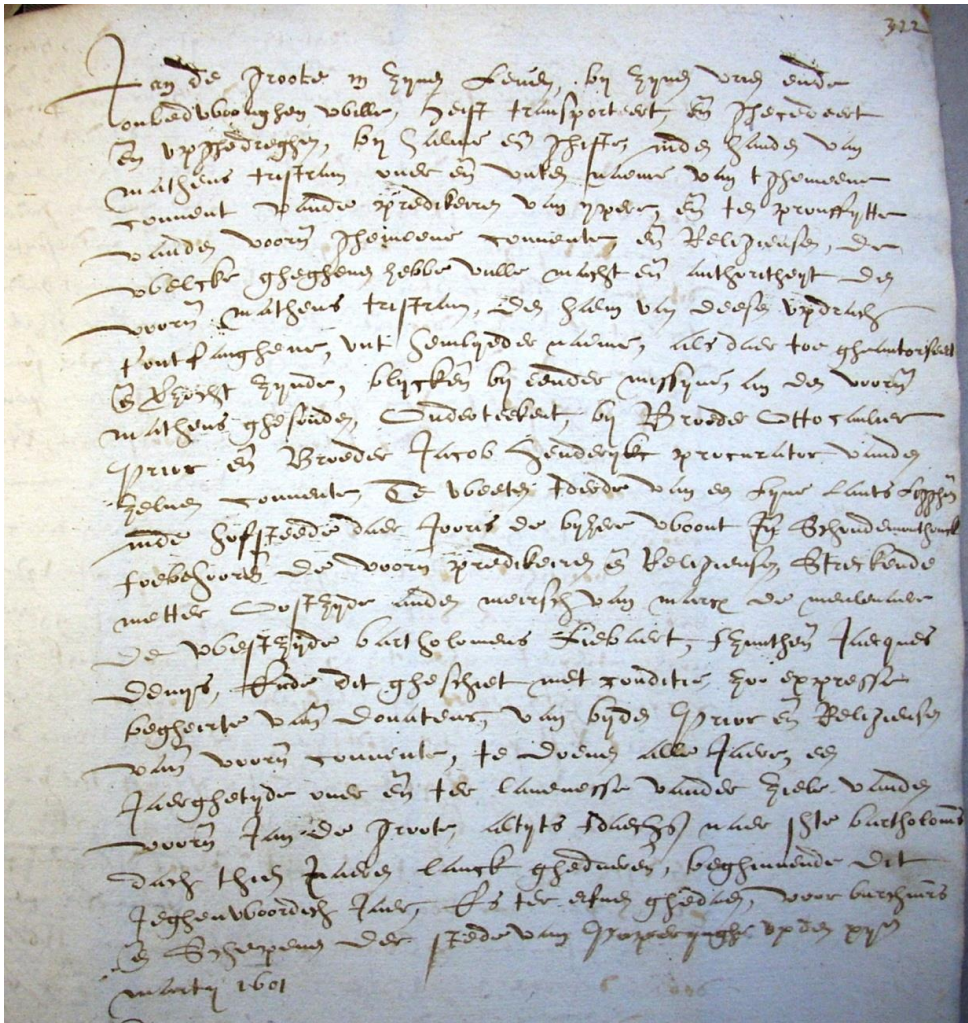 322
Jan de Groote in zynen levene, by zynen vrien ende
onbedwonghen wille, heeft transporteert, en ghecedeert
en upghedreghen, by halme en ghifte, inden handen van
matheus tristram over en uuten naeme van tghemeene
convent vande predikeeren van ypere, en ten prouffytte
vanden voorn ghemeene convente, en Religieusen, de
welcke ghegheven hebbe vulle macht en authoriteyt den
voorn matheus tristram, den halm van deese updracht
tontfanghene, uut hemlyeder naeme, als daer toe gheautoriseert
en verzocht zynde, blycken by eender missyve, an den voorn
matheus ghesonden, Onderteekent, by Broeder Otto
Prior en Broeder Jacob Henderyckx procurator vanden
zelven convente, Te weeten tderde van een lyne lants ligghen
inde hofstede daer Jooris de byzere woont In Schoudemonthouck
toebehooren de voorn predikeiren en Religieusen, Streckende
metter Oostzyde anden meersch van marcx de meulenaere
De westzyde bartholomeus Liebaert, tzuuthen Jacques
Denys, Ende dit gheschiet met conditie, zoo expresse
begheerte van donateur, van byden Prior en Religieusen
van voorn convente, te doene alle Jaere, een
Jaerghetyde over en ter lavenesse vander ziele vanden
voorn Jan de Groote, altyts tdaechs naer ste bartholomeus
dach thien Jaeren lanck ghedueren, beghinnende dit
Jeghenwoordich Jaer, Es ter erfven ghedaen, voor burchmrs
en Schepenen der stede van Poperynghe up den
martij 1601